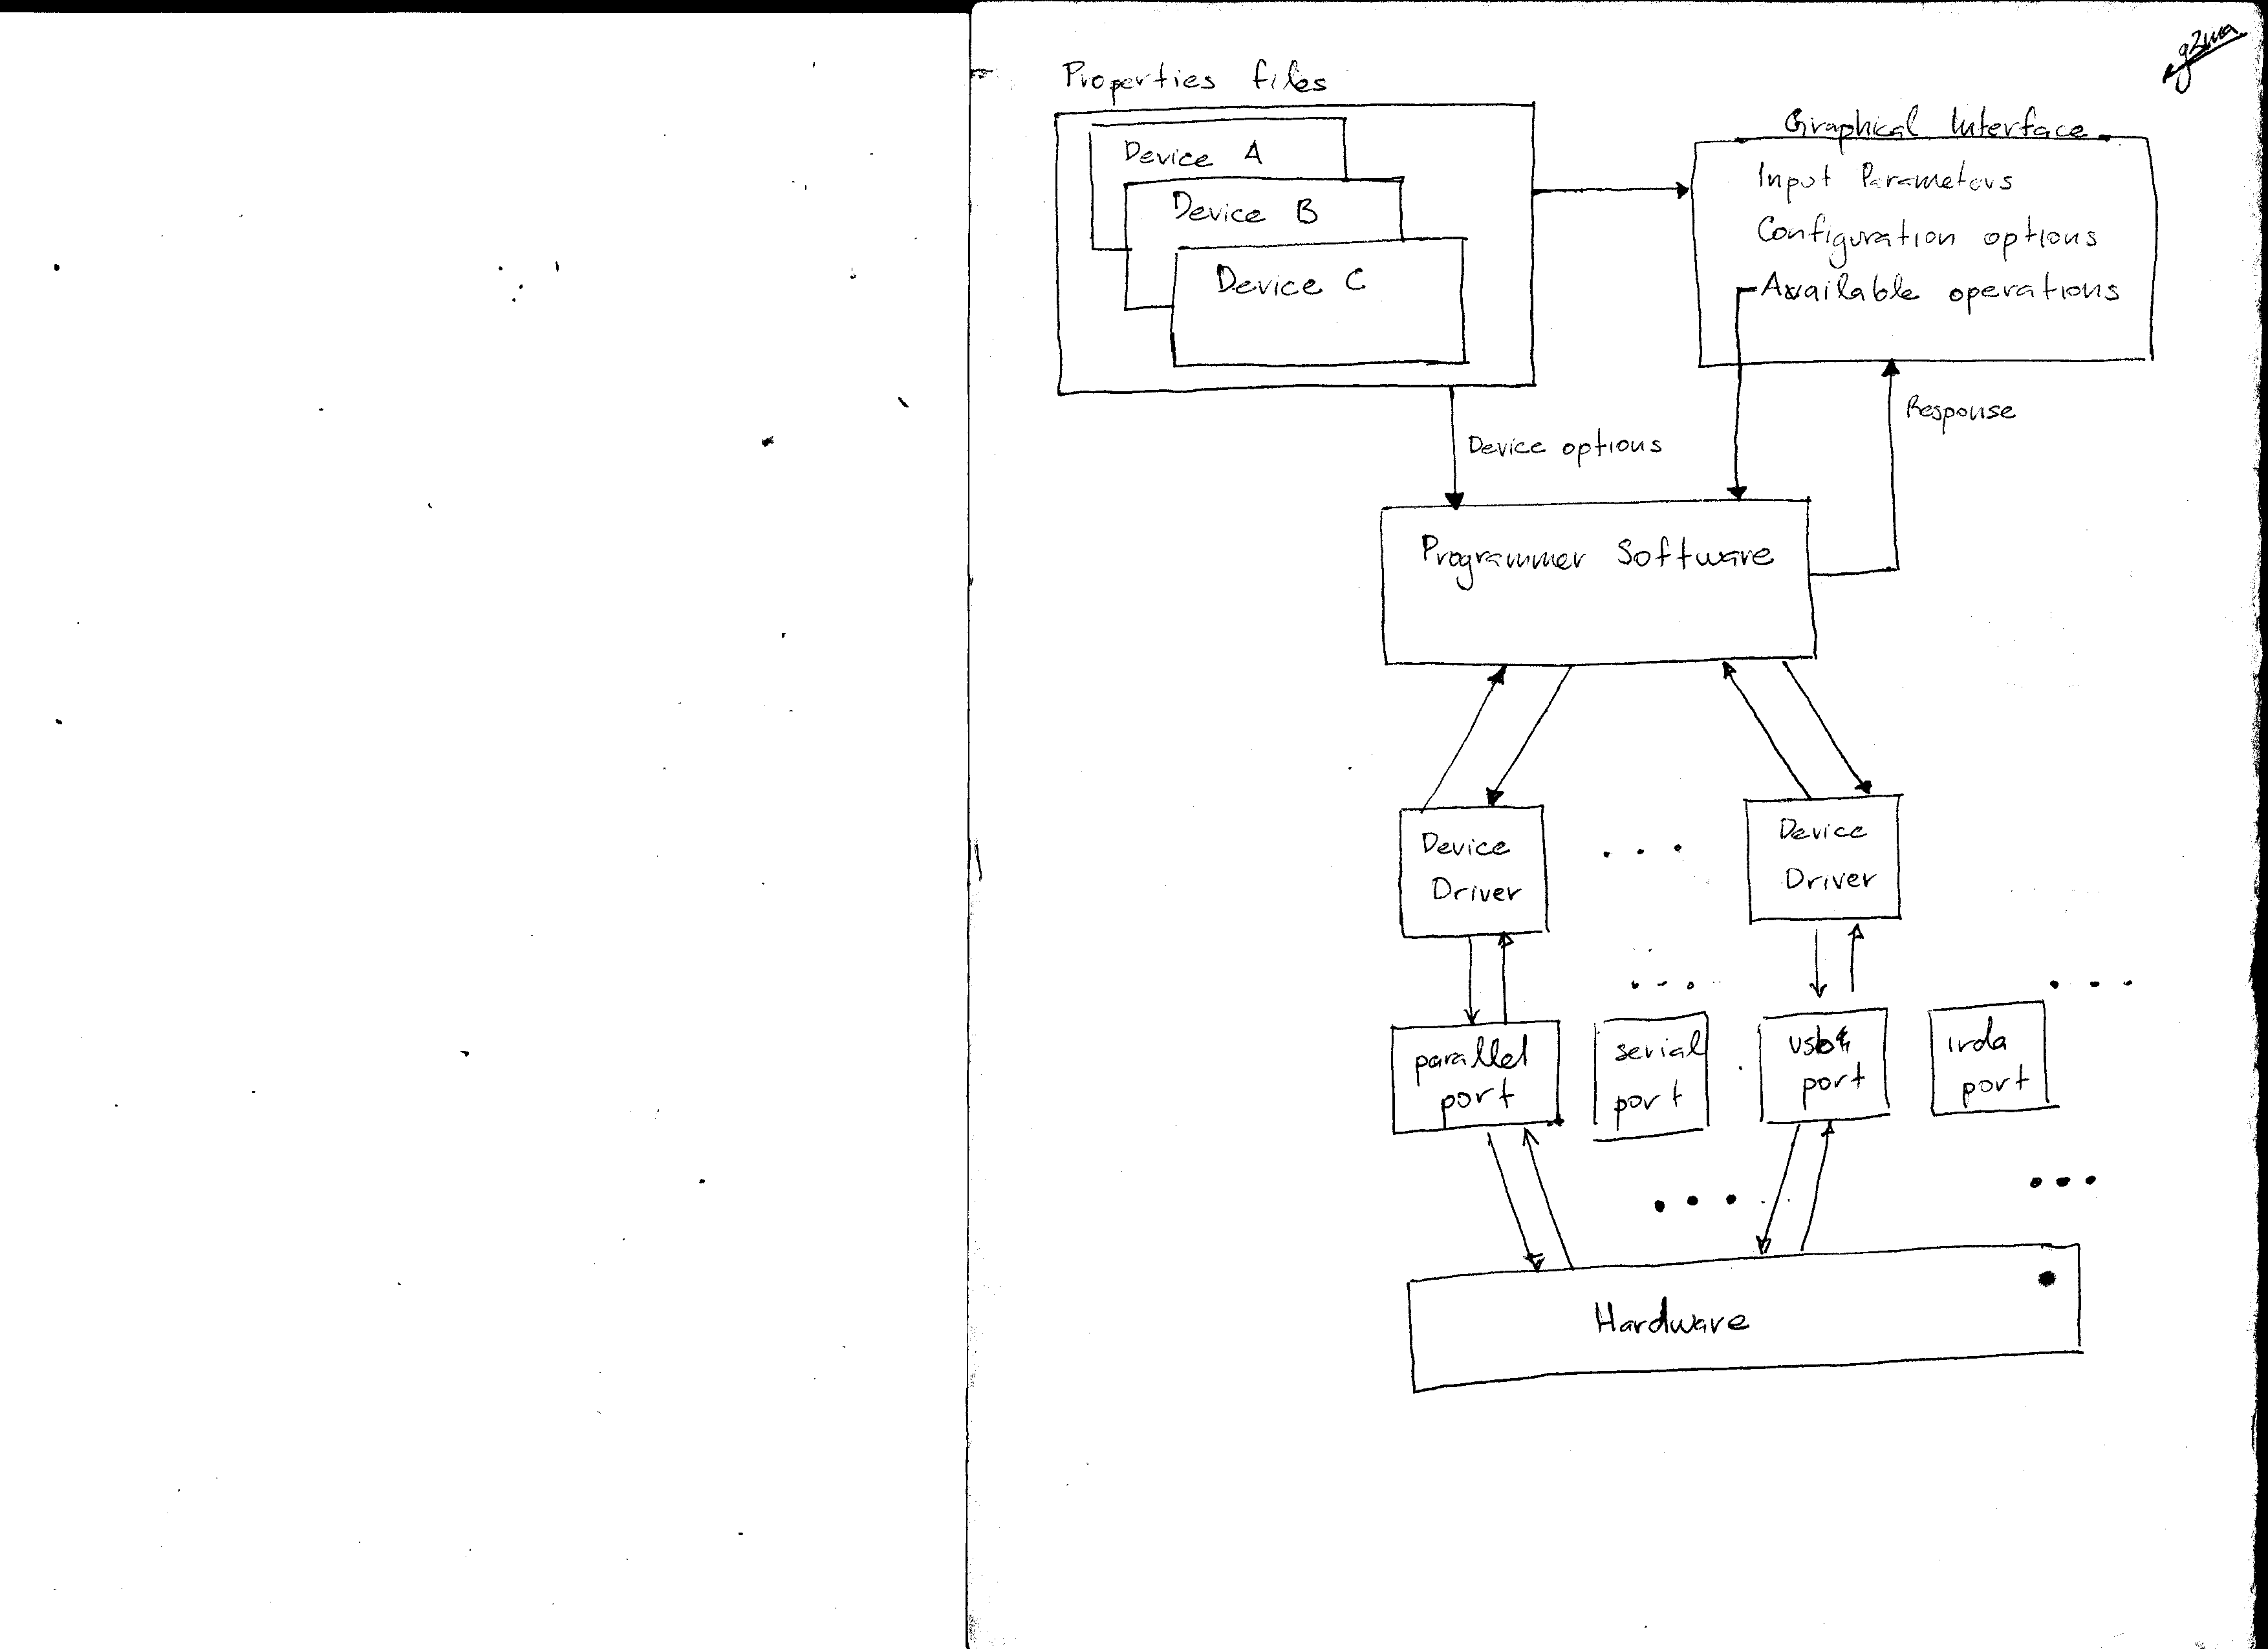 Properties files
Device A
Device B
Device C
Graphical Interface
Input Parameters
Configuration options
Available operations
Response
Device options
Programmer Software
Device
Driver
. . .
Device
Driver
. . .
. . .
parallel
port
serial
port
usb
port
irda
port
. . .
. . .
Hardware